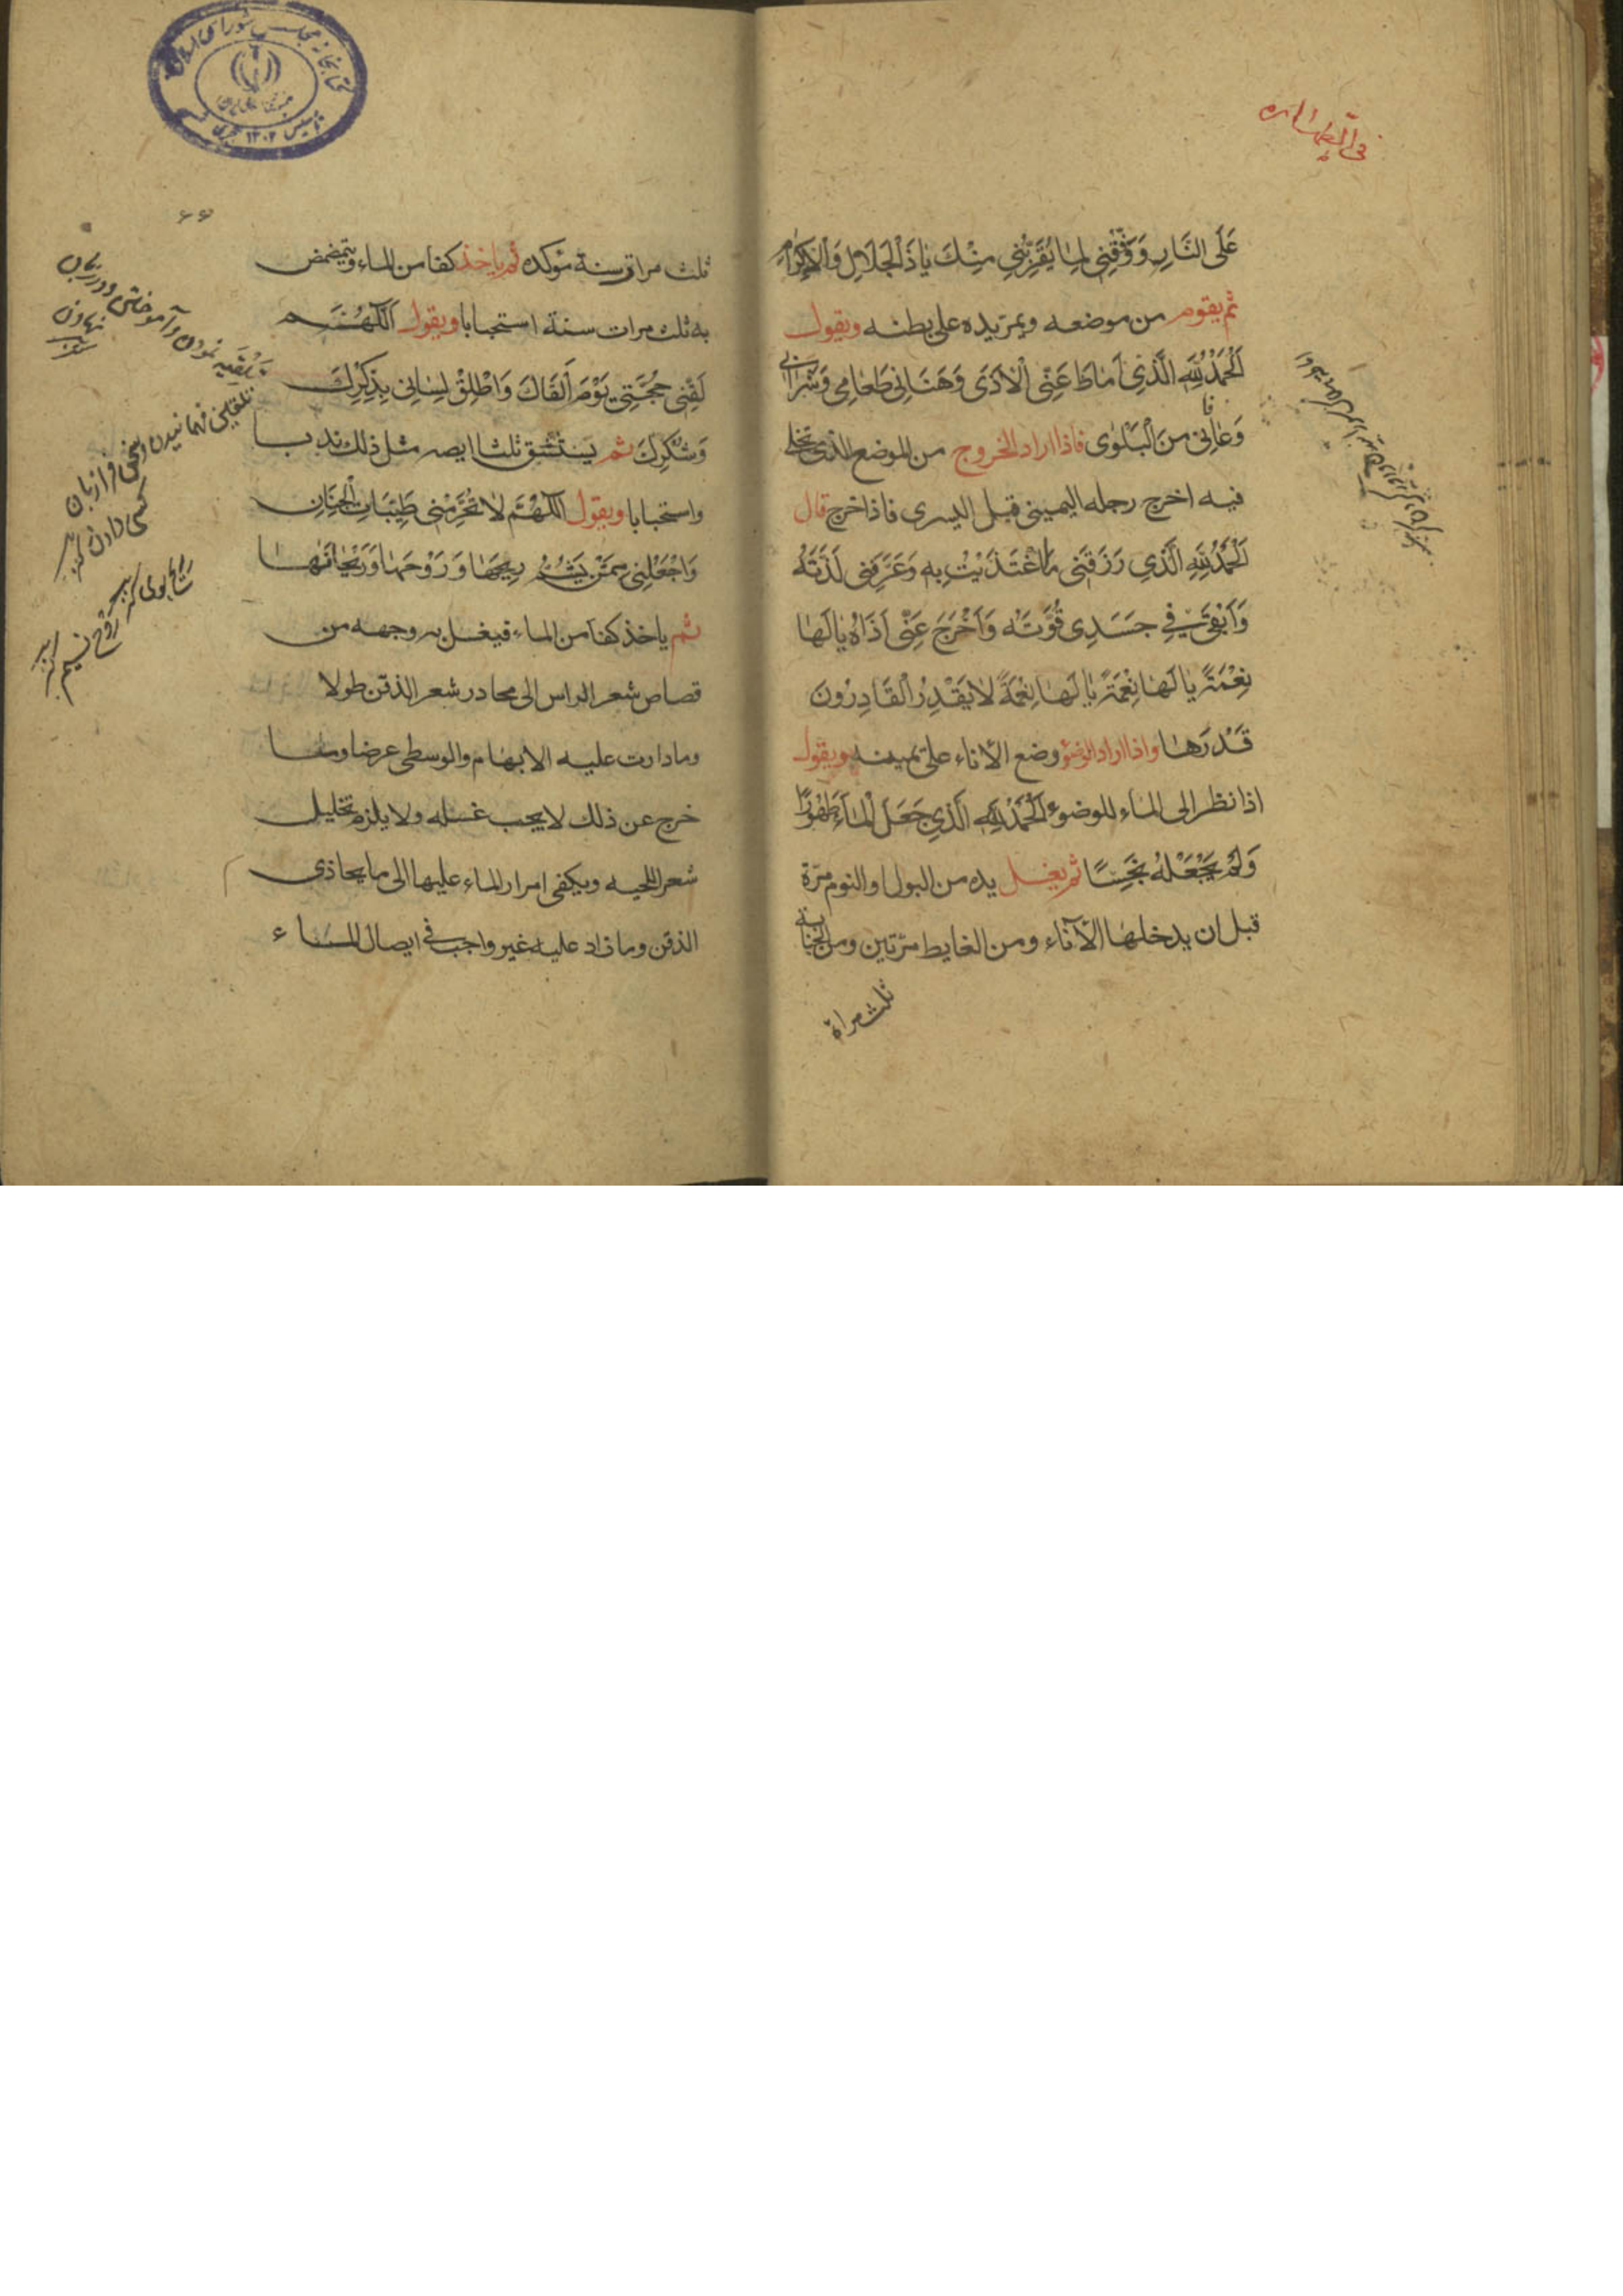 في الطهارة
عَلَى النَّارِ وَوَفِّقْنِي لِمَا يُقَرِّبُنِي مِنْكَ يَا ذَا الْجَلَالِ وَالْاِكْرَامِ
ثم يقوم من موضعه ويمر يده على بطنه ويقول
اَلْحَمْدُ لِلّٰهِ الَّذِي اَمَاطَ عَنِّي الْاَذَى وَهَنَانِي طَعَامِي وَشَرَابِي
وَعَافَانِي مِنَ الْبَلْوٰى فاذا اراد الخروج من الموضع الذي تخلى
فيه اخرج رجله اليمينى قبل اليسرى فاذا خرج قال
اَلْحَمْدُ لِلّٰهِ الَّذِي رَزَقَنِي مَا اغْتَذَيْتُ بِهِ وَعَرَّفَنِي لَذَّتَهُ
وَاَبْقَى فِي جَسَدِي قُوَّتَهُ وَاَخْرَجَ عَنِّي اَذَاهُ يَا لَهَا
نِعْمَةً يَا لَهَا نِعْمَةً يَا لَهَا نِعْمَةً لَا يَقْدِرُ الْقَادِرُونَ
قَدْرَهَا واذا اراد الوضؤ وضع الاناء على يمينه ويقول
اذا نظر الى الماء للوضوء اَلْحَمْدُ لِلّٰهِ الَّذِي جَعَلَ الْمَاءَ طَهُورًا
وَلَمْ يَجْعَلْهُ نَجِسًا ثم يغسل يده من البول او النوم مرّة
قبل ان يدخلها الاناء ومن الغايط مرّتين ومن الجنابة
ثلث مراة
ثلث مراة سنة مؤكده ثم ياخذ كفا من الماء ويتمضمض
به ثلث مرات سنة استحبابا ويقول اَللّٰهُمَّ
لَقِّنِي حُجَّتِي يَوْمَ اَلْقَاكَ وَاَطْلِقْ لِسَانِي بِذِكْرِكَ
وَشُكْرِكَ ثم يستنشق ثلثا ايضه مثل ذلك ندبا
واستحبابا ويقول اَللّٰهُمَّ لَا تُحَرِّمْنِي طَيِّبَاتِ الْجِنَانِ
وَاجْعَلْنِي مِمَّنْ يَشُمُّ رِيحَهَا وَرَوْحَهَا وَرَيْحَانَهَا
ثم ياخذ كفا من الماء فيغسل به وجهه من
قصاص شعر الراس الى محادر شعر الذقن طولا
وما دارت عليه الابهام والوسطى عرضا وما
خرج عن ذلك لا يجب غسله ولا يلزم تخليل
شعر اللحيه ويكفى امرار الماء عليها الى ما يحاذى
الذقن وما زاد عليه غير واجب في ايصال الماء